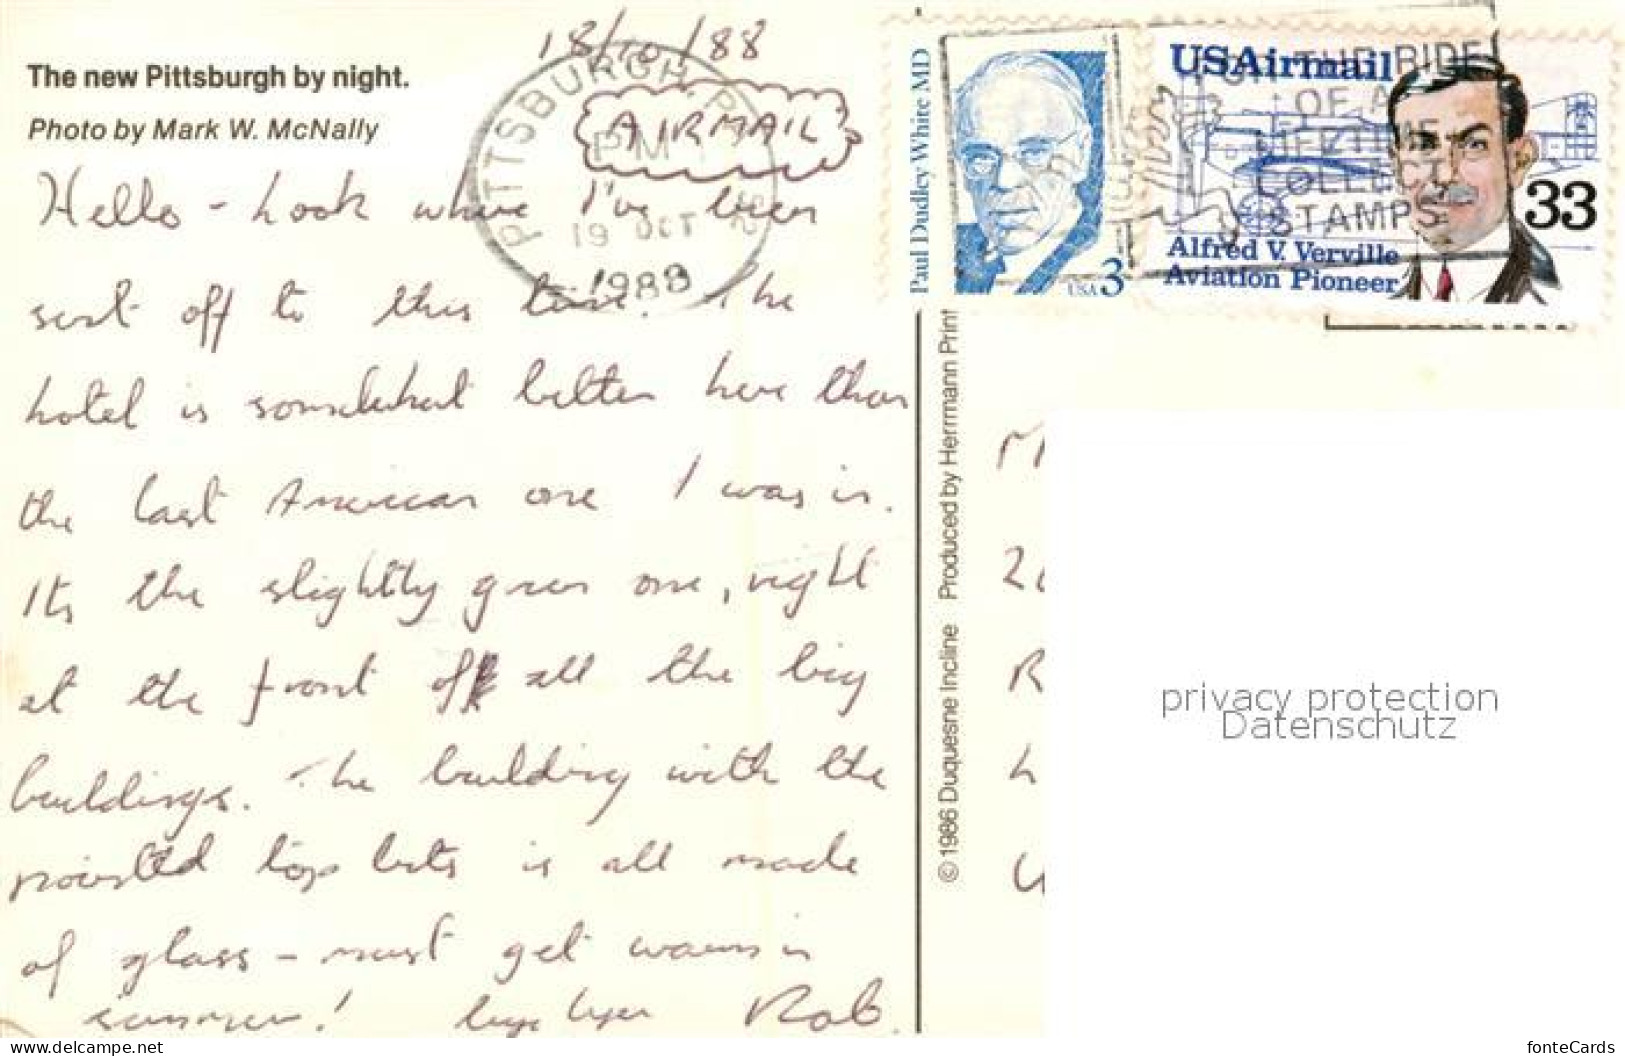 18/10/88
The new Pittsburgh by night.
Photo by Mark W. McNally
AIRMAIL
Hello - Look where I've been
sent off to this time. The
hotel is somewhat better here than
the last American one I was in.
It's the slightly green one, right
at the front of all the big
buildings. The building with the
pointed top bits is all made
of glass - must get warm in
summer! Bye bye Rob.
PITTSBURGH, PA
PM
19 OCT
1988
Paul Dudley White MD
USA 3
USAirmail
33
Alfred V. Verville
Aviation Pioneer
THE RIDE
OF A
LIFETIME
COLLECT
STAMPS
© 1986 Duquesne Incline Produced by Herrmann Print
privacy protection
Datenschutz
www.delcampe.net
fonteCards